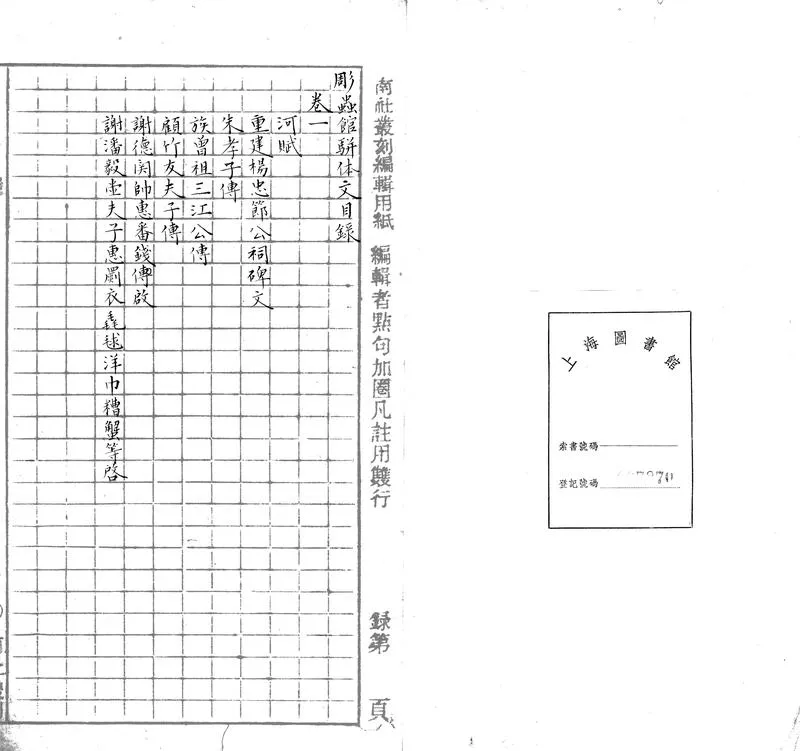 上海圖書館
索書號碼
登記號碼
南社叢刻編輯用紙 編輯者點句加圈凡註用雙行 錄第 頁
彫蟲館駢体文目錄
卷一
河賦
重建楊忠節公祠碑文
朱孝子傳
族曾祖三江公傳
顧竹友夫子傳
謝德閔帥惠番錢傳啟
謝潘毅壷夫子惠罽衣毳毬洋巾糟蟹等啓